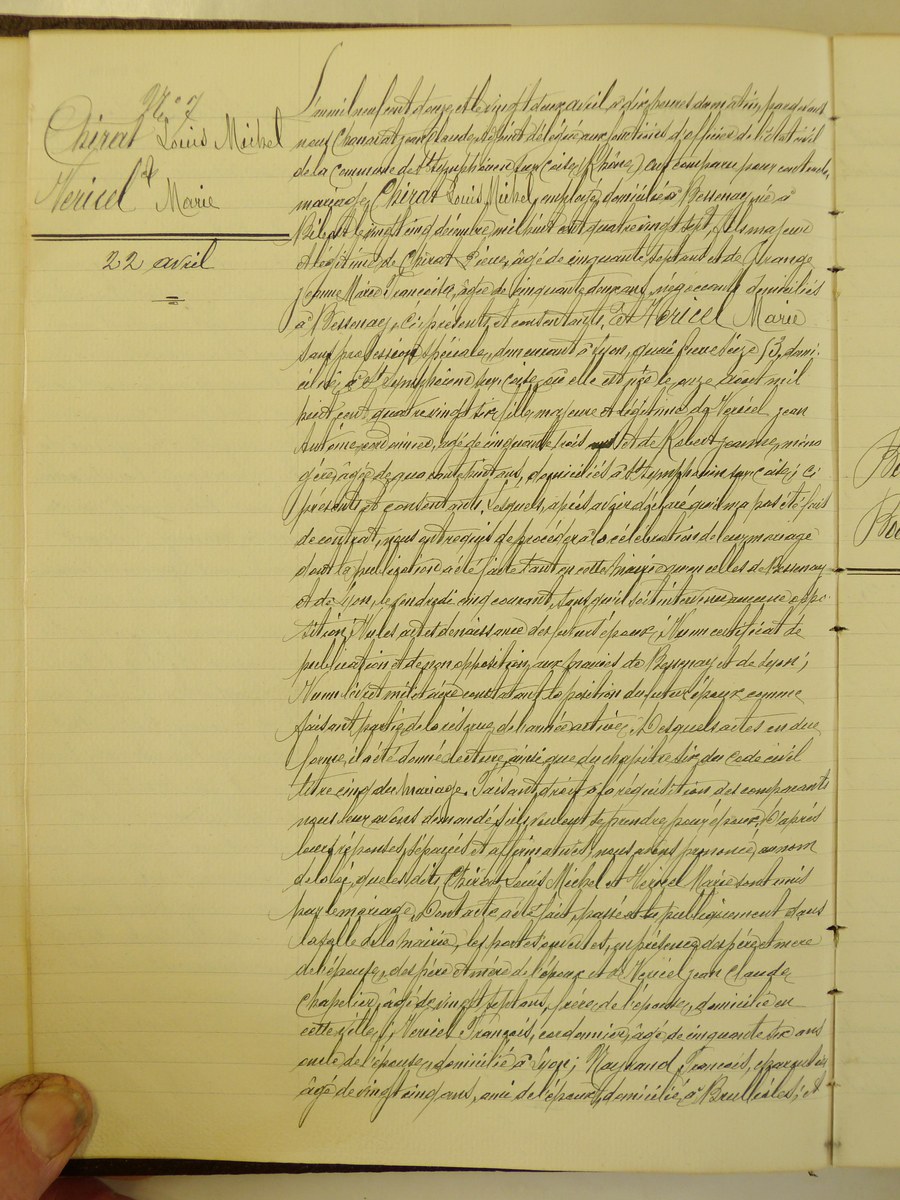 N° 7
Chirat Louis Michel
&
Vericel Marie
22 avril
L'an mil neuf cent douze, et le vingt deux avril, à dix heures du matin, par devant
nous Chanorat jean Claude, adjoint délégué aux fonctions d'officier de l'état civil
de la commune de St Symphorien sur Coise (Rhône) ont comparu pour contracter
mariage, Chirat Louis Michel, employé, domicilié à Bessenay, né à
le vingt cinq décembre mil huit cent quatre vingt sept, fils majeur
et légitime de Chirat Pierre, âgé de cinquante sept ans et de Grange
jeanne Marie Françoise, âgée de cinquante deux ans, négociants domiciliés
à Bessenay, ci présents et consentants, et Vericel Marie
sans profession spéciale, demeurant à Lyon, quai Pierre Scize 53, domi-
ciliée à St Symphorien sur Coise, où elle est née le onze août mil
huit cent quatre vingt six, fille majeure et légitime de Vericel jean
Antoine, cordonnier, âgé de cinquante trois et de Robert jeanne, ména
gère, âgée de quarante huit ans, domiciliés à St Symphorien sur Coise, ci
présents et consentants. Lesquels, après avoir déclaré qu'il n'a pas été fait
de contrat, nous ont requis de procéder à la célébration de leur mariage
dont la publication a été faite tant en cette mairie qu'en celles de Bessenay
et de Lyon, le vendredi cinq courant, sans qu'il soit intervenu aucune oppo-
sition; Vu les actes de naissance des futurs époux; Vu un certificat de
publication et de non opposition, aux mairies de Bessenay et de Lyon;
Vu un livret militaire constatant la position du futur époux comme
faisant partie de la réserve de l'armée active. Desquels actes en due
forme, il a été donné lecture, ainsi que du chapitre six du code civil
titre cinq du mariage. Faisant droit à la réquisition des comparants
nous leur avons demandé s'ils veulent se prendre pour époux; D'après
leurs réponses, séparées et affirmatives, nous avons prononcé, au nom
de la loi, que les dits Chirat Louis Michel et Vericel Marie sont unis
par le mariage. Dont acte a été fait, passé et publiquement dans
la salle de la mairie, les portes ouvertes, en présence des père et mère
de l'épouse, des père et mère de l'époux et de Vericel jean Claude
chapelier, âgé de vingt sept ans, frère de l'épouse, domicilié en
cette ville; Vericel François, cordonnier, âgé de cinquante six ans
oncle de l'épouse, domicilié à Lyon; François,
âgé de vingt cinq ans, ami de l'époux, domicilié à Brullioles; et